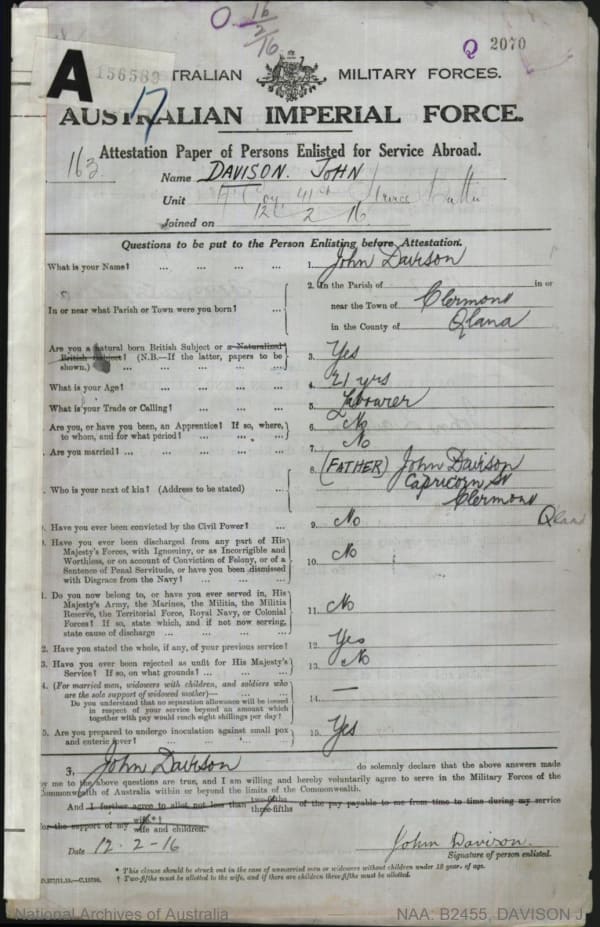 O. 16/2/16
Q 2070
A 156589
17
AUSTRALIAN MILITARY FORCES.
AUSTRALIAN IMPERIAL FORCE.
163
Attestation Paper of Persons Enlisted for Service Abroad.
Name DAVISON. JOHN
Unit A Coy. 41st
Joined on 12 2 16
Questions to be put to the Person Enlisting before Attestation.
What is your Name? ... ... ... ... 1. John Davison
2. In the Parish of in or
In or near what Parish or Town were you born? ... near the Town of Clermont
in the County of Qland
Are you a natural born British Subject or a Naturalized
British Subject? (N.B.—If the latter, papers to be
shown.) ... ... ... ... 3. Yes
What is your Age? ... ... ... ... 4. 21 yrs
What is your Trade or Calling? ... ... ... 5. Labourer
Are you, or have you been, an Apprentice? If so, where,
to whom, and for what period? ... ... ... 6. No
. Are you married? ... ... ... ... ... 7. No
. Who is your next of kin? (Address to be stated) ... 8. (FATHER) John Davison
Capricorn St
Clermont
Qland
. Have you ever been convicted by the Civil Power? ... 9. No
. Have you ever been discharged from any part of His
Majesty's Forces, with Ignominy, or as Incorrigible and
Worthless, or on account of Conviction of Felony, or of a
Sentence of Penal Servitude, or have you been dismissed
with Disgrace from the Navy? ... ... ... 10. No
1. Do you now belong to, or have you ever served in, His
Majesty's Army, the Marines, the Militia, the Militia
Reserve, the Territorial Force, Royal Navy, or Colonial
Forces? If so, state which, and if not now serving,
state cause of discharge ... ... ... ... 11. No
2. Have you stated the whole, if any, of your previous service? 12. Yes
3. Have you ever been rejected as unfit for His Majesty's
Service? If so, on what grounds? ... ... ... 13. No
4. (For married men, widowers with children, and soldiers who
are the sole support of widowed mother)— ... ...
Do you understand that no separation allowance will be issued
in respect of your service beyond an amount which
together with pay would reach eight shillings per day? 14. —
5. Are you prepared to undergo inoculation against small pox
and enteric fever? ... ... ... ... 15. Yes
I, John Davison do solemnly declare that the above answers made
by me to the above questions are true, and I am willing and hereby voluntarily agree to serve in the Military Forces of the
Commonwealth of Australia within or beyond the limits of the Commonwealth.
And I further agree to allot not less than two-fifths three-fifths of the pay payable to me from time to time during my service
for the support of my wife* wife and children.†
Date 12-2-16 John Davison.
Signature of person enlisted.
* This clause should be struck out in the case of unmarried men or widowers without children under 18 years of age.
† Two-fifths must be allotted to the wife, and if there are children three-fifths must be allotted.
National Archives of Australia NAA: B2455, DAVISON J